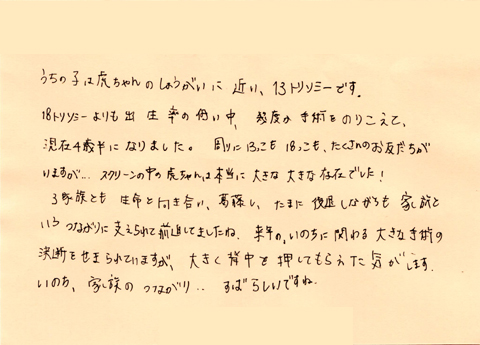 うちの子は虎ちゃんのしょうがいに近い、13トリソミーです。
18トリソミーよりも出生率の低い中、幾度の手術をのりこえて、
現在4歳半になりました。周りに13っこも18っこも、たくさんのお友だちが
いますが… スクリーンの中の虎ちゃんは本当に大きな大きな存在でした!
3家族とも生命と向き合い、葛藤し、たまに後退しながらも家族と
いうつながりに支えられて前進してましたね。来年の、いのちに関わる大きな手術の
決断をせまられていますが、大きく背中を押してもらえた気がします。
いのち、家族のつながり‥すばらしいですね。